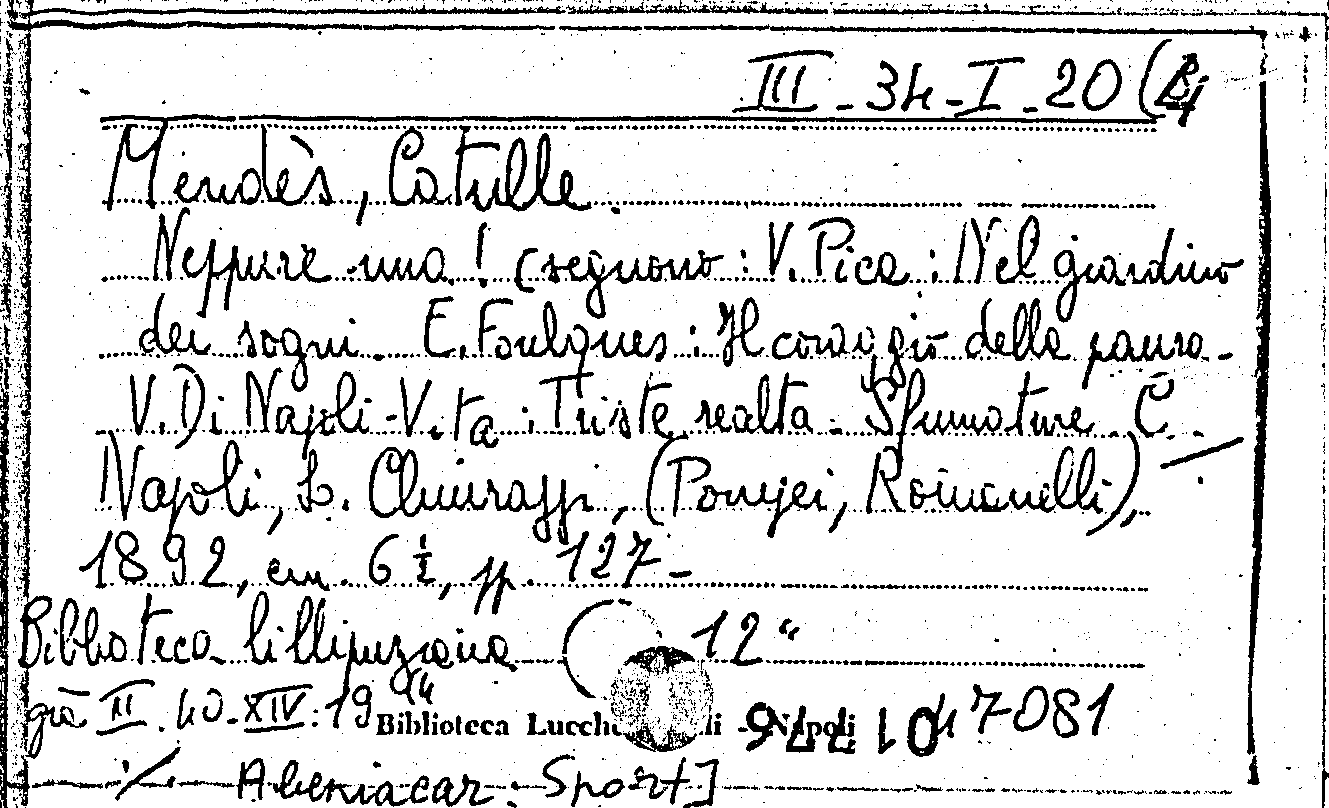 III - 34 - I - 20 (
Mendès, Catulle.
Neppure una! (seguono: V. Pica: Nel giardino
dei sogni. E. Foulques: Il coraggio della paura -
V. Di Napoli-V.ta: Triste realta - Sfumature C.
Napoli, L. Chiurazzi, (Pompei, Romanelli),
1892, cm. 6 ½, pp. 127 -
Biblioteca lillipuziana 12
già II. 40 - XIV: 19 Biblioteca - Napoli 47081
./. Abeniacar: Sport]